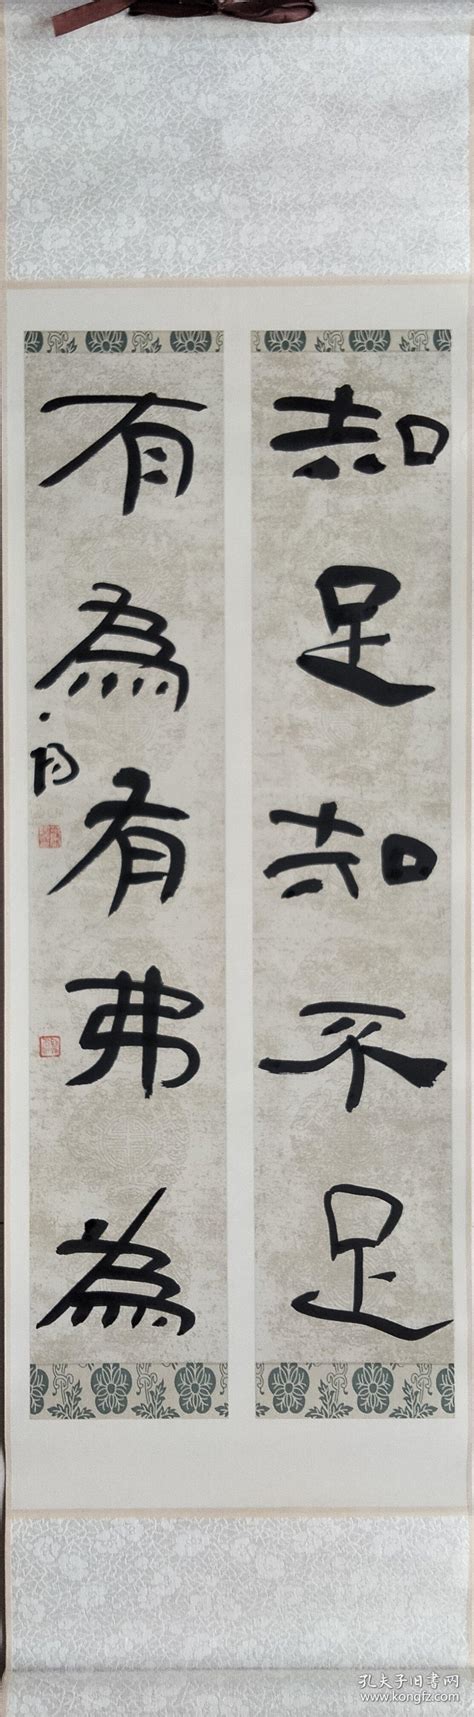 知足知不足
有為有弗為
孔夫子旧书网
www.kongfz.com